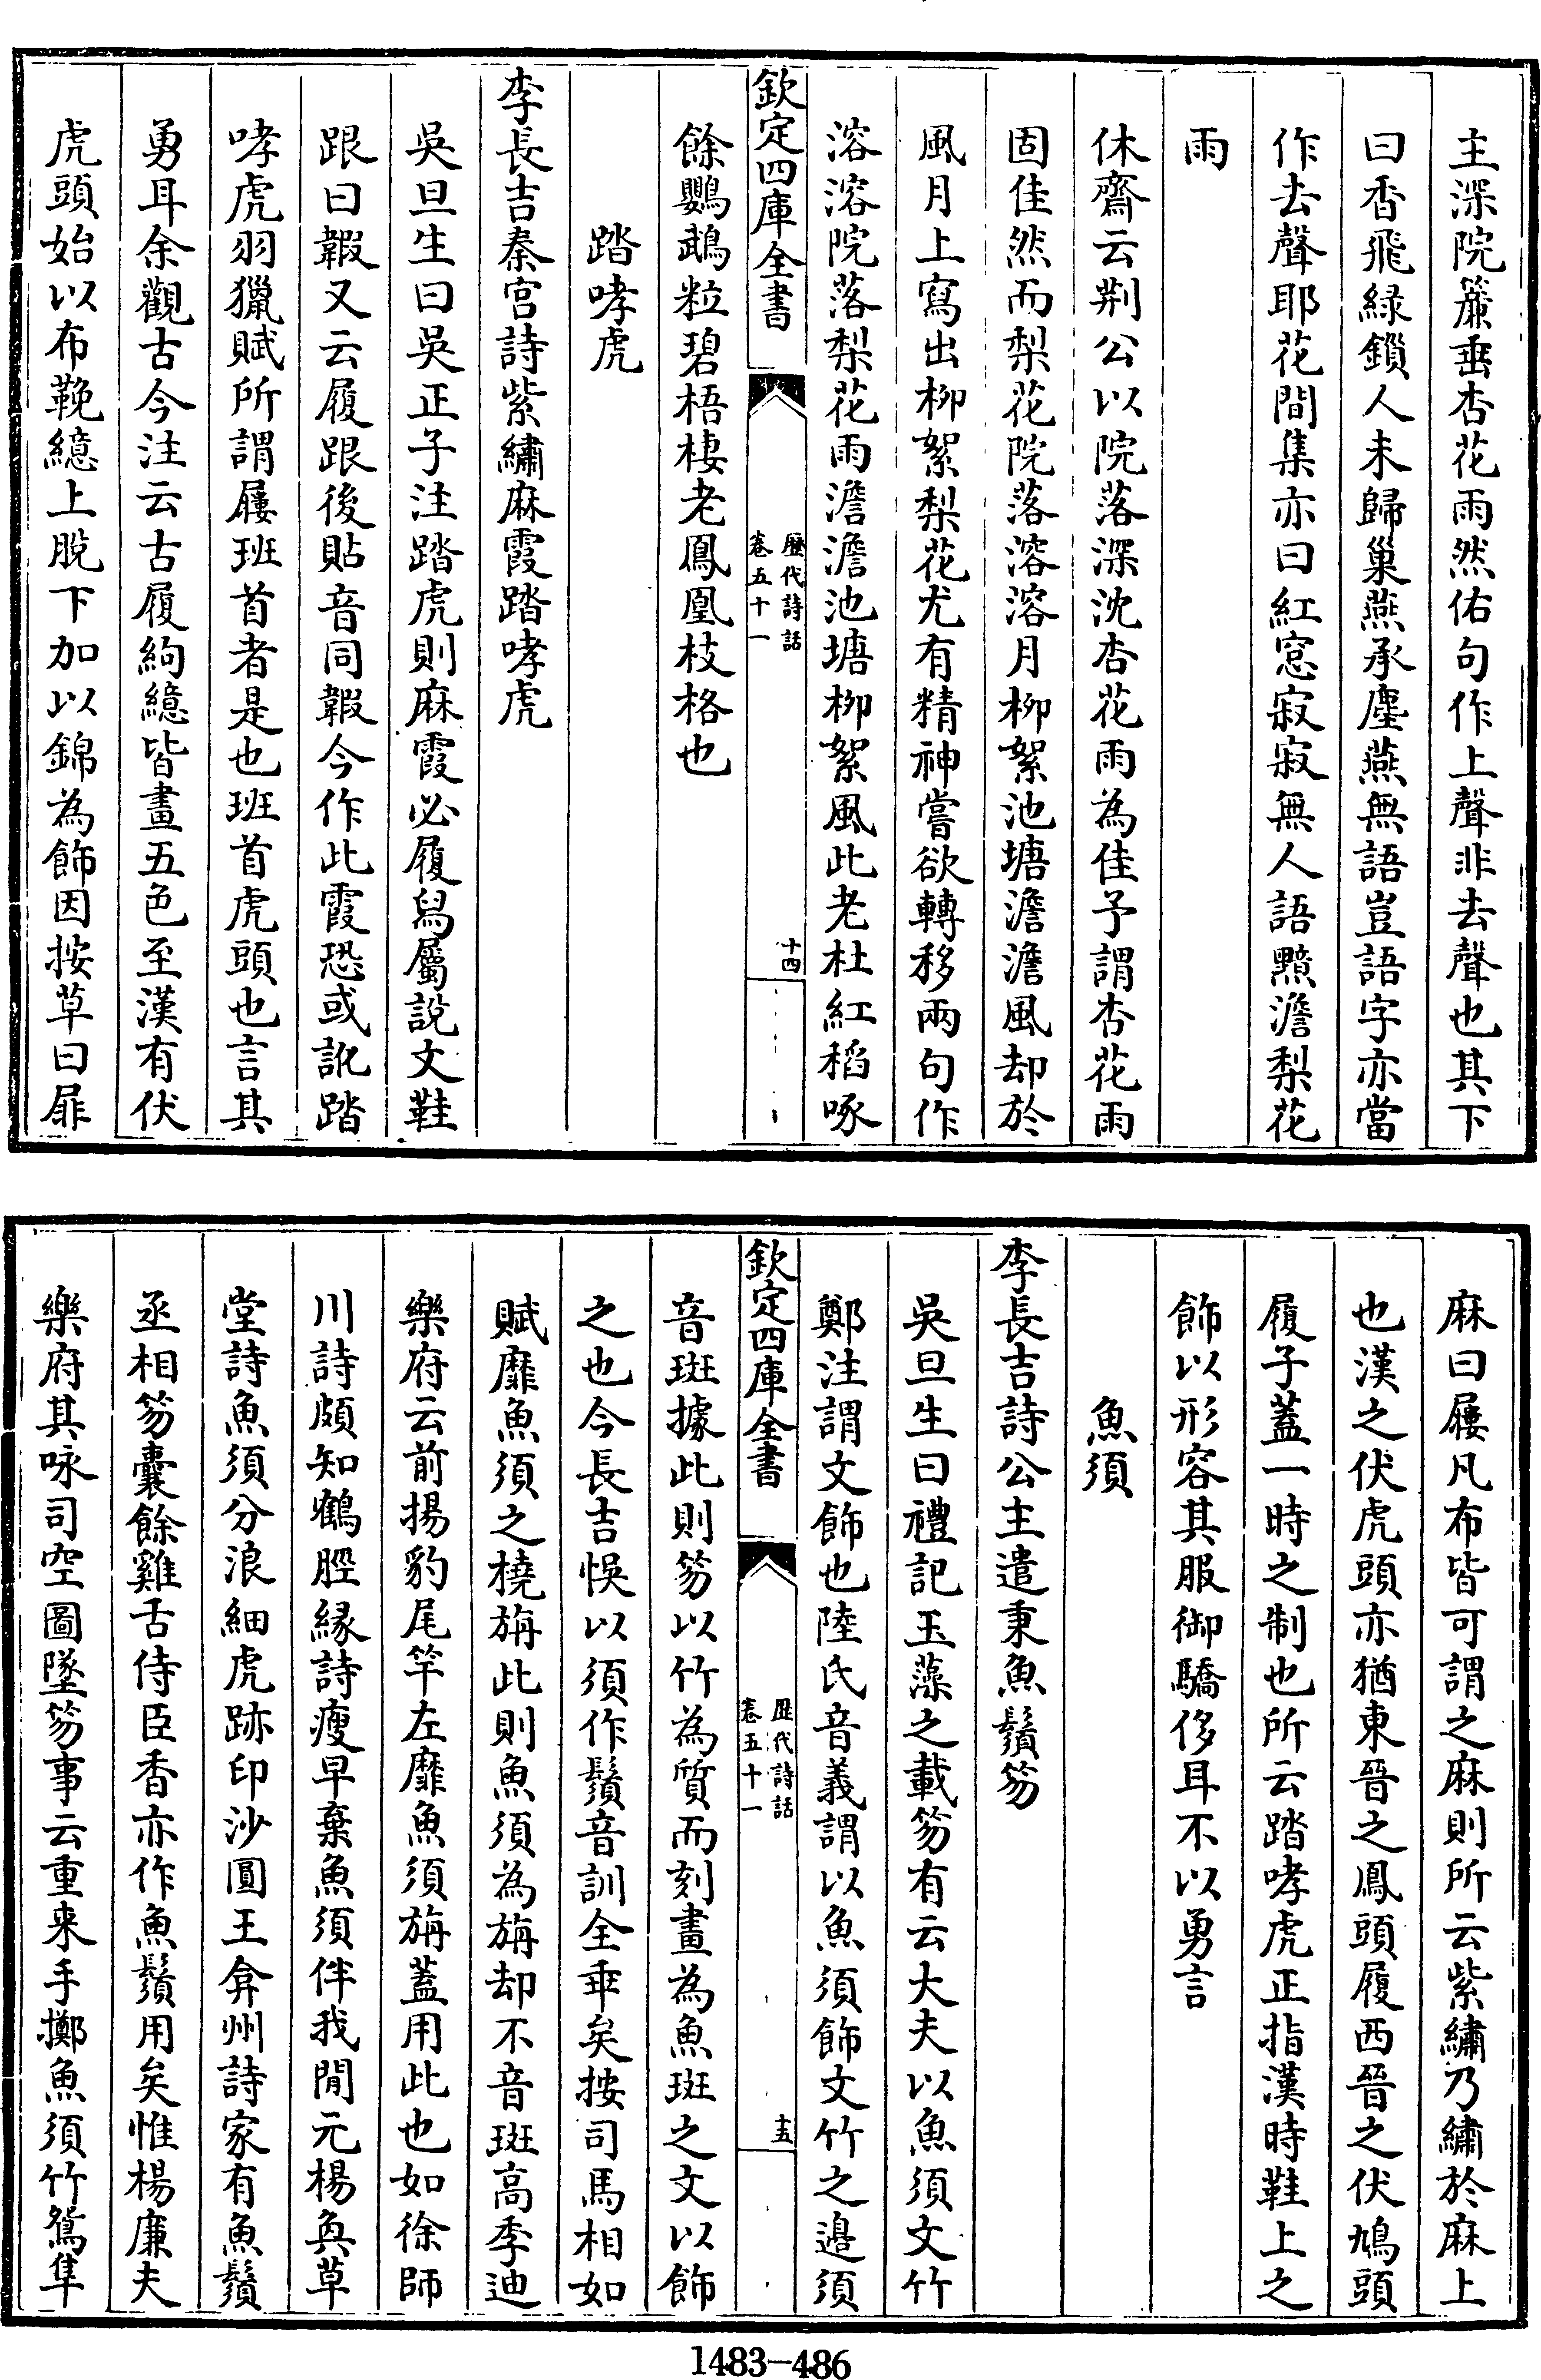 主深院簾垂杏花雨然佑句作上聲非去聲也其下
曰香飛緑鎖人未歸巢燕承塵燕無語豈語字亦當
作去聲耶花間集亦曰紅窓寂寂無人語黯澹梨花
雨
休齋云荆公以院落深沈杏花雨為佳予謂杏花雨
固佳然而梨花院落溶溶月柳絮池塘澹澹風却於
風月上寫出柳絮梨花尤有精神嘗欲轉移兩句作
溶溶院落梨花雨澹澹池塘柳絮風此老杜紅稻啄
欽定四庫全書
歷代詩話
卷五十一
十四
餘鸚鵡粒碧梧棲老鳳凰枝格也
踏哮虎
李長吉秦宫詩紫繡麻霞踏哮虎
吳旦生曰吳正子注踏虎則麻霞必履舄屬說文鞋
跟曰䪗又云履跟後貼音同䪗今作此霞恐或訛踏
哮虎羽獵賦所謂屨班首者是也班首虎頭也言其
勇耳余觀古今注云古履絇繶皆畫五色至漢有伏
虎頭始以布鞔繶上脫下加以錦為飾因按草曰屝
麻曰屨凡布皆可謂之麻則所云紫繡乃繡於麻上
也漢之伏虎頭亦猶東晉之鳳頭履西晉之伏鳩頭
履子蓋一時之制也所云踏哮虎正指漢時鞋上之
飾以形容其服御驕侈耳不以勇言
魚須
李長吉詩公主遣秉魚鬚笏
吳旦生曰禮記玉藻之載笏有云大夫以魚須文竹
鄭注謂文飾也陸氏音義謂以魚須飾文竹之邉須
欽定四庫全書
歷代詩話
卷五十一
十五
音斑據此則笏以竹為質而刻畫為魚斑之文以飾
之也今長吉悞以須作鬚音訓全乖矣按司馬相如
賦靡魚須之橈旃此則魚須為旃却不音斑高季迪
樂府云前揚豹尾竿左靡魚須旃蓋用此也如徐師
川詩頗知鶴脛緣詩瘦早棄魚須伴我閒元楊奐草
堂詩魚須分浪細虎跡印沙圓王弇州詩家有魚鬚
丞相笏囊餘雞舌侍臣香亦作魚鬚用矣惟楊廉夫
樂府其咏司空圖墜笏事云重来手擲魚須竹鴛隼
1483-486